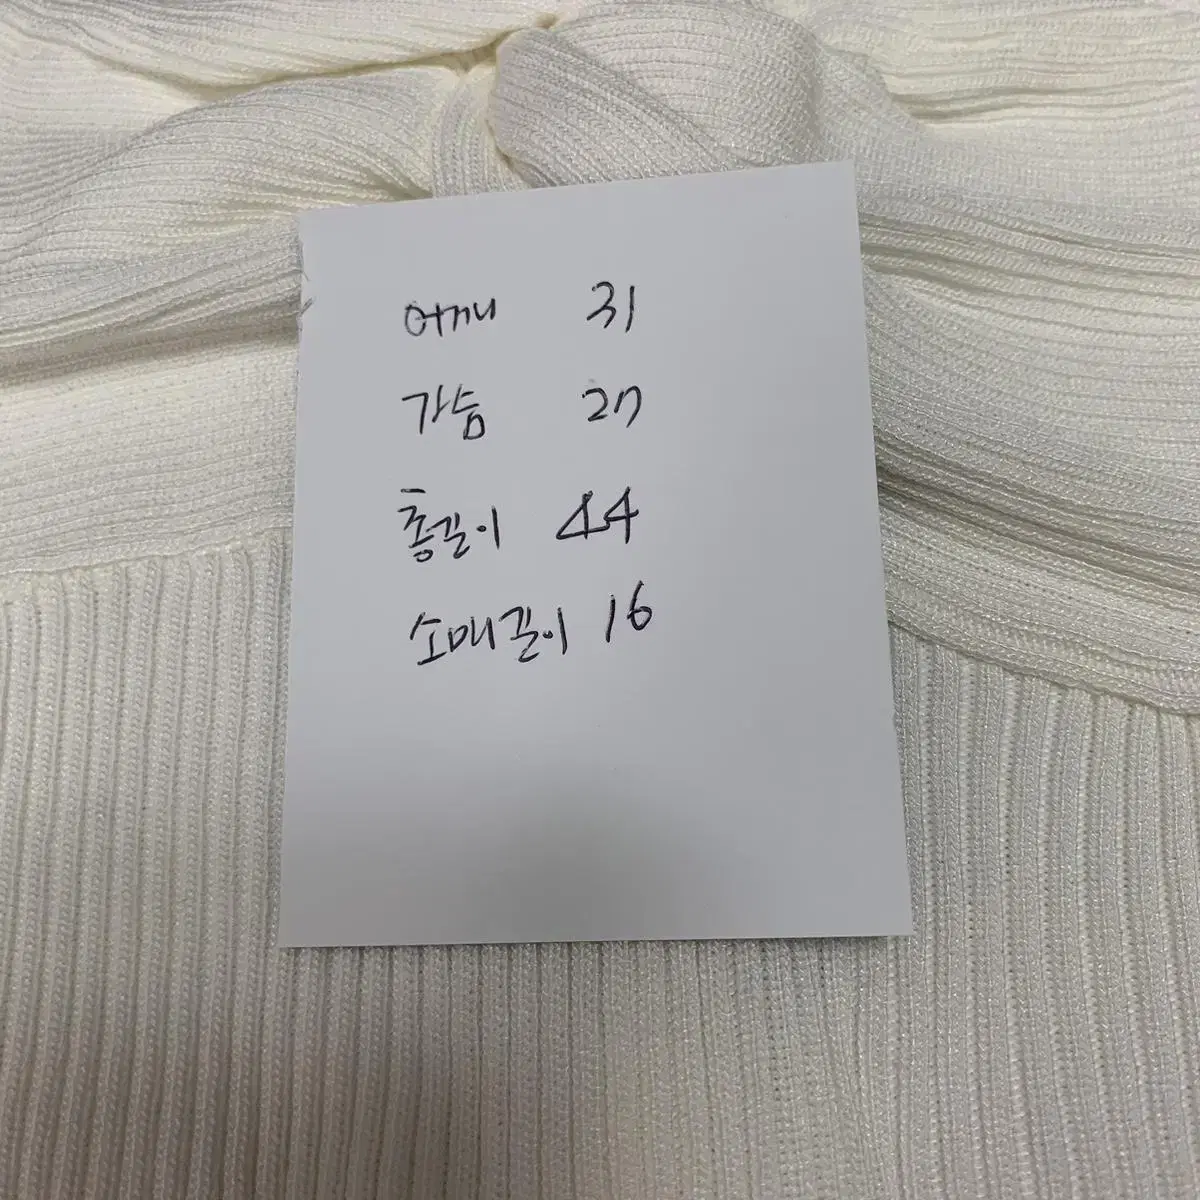 어깨 31
가슴 27
총길이 44
소매길이 16